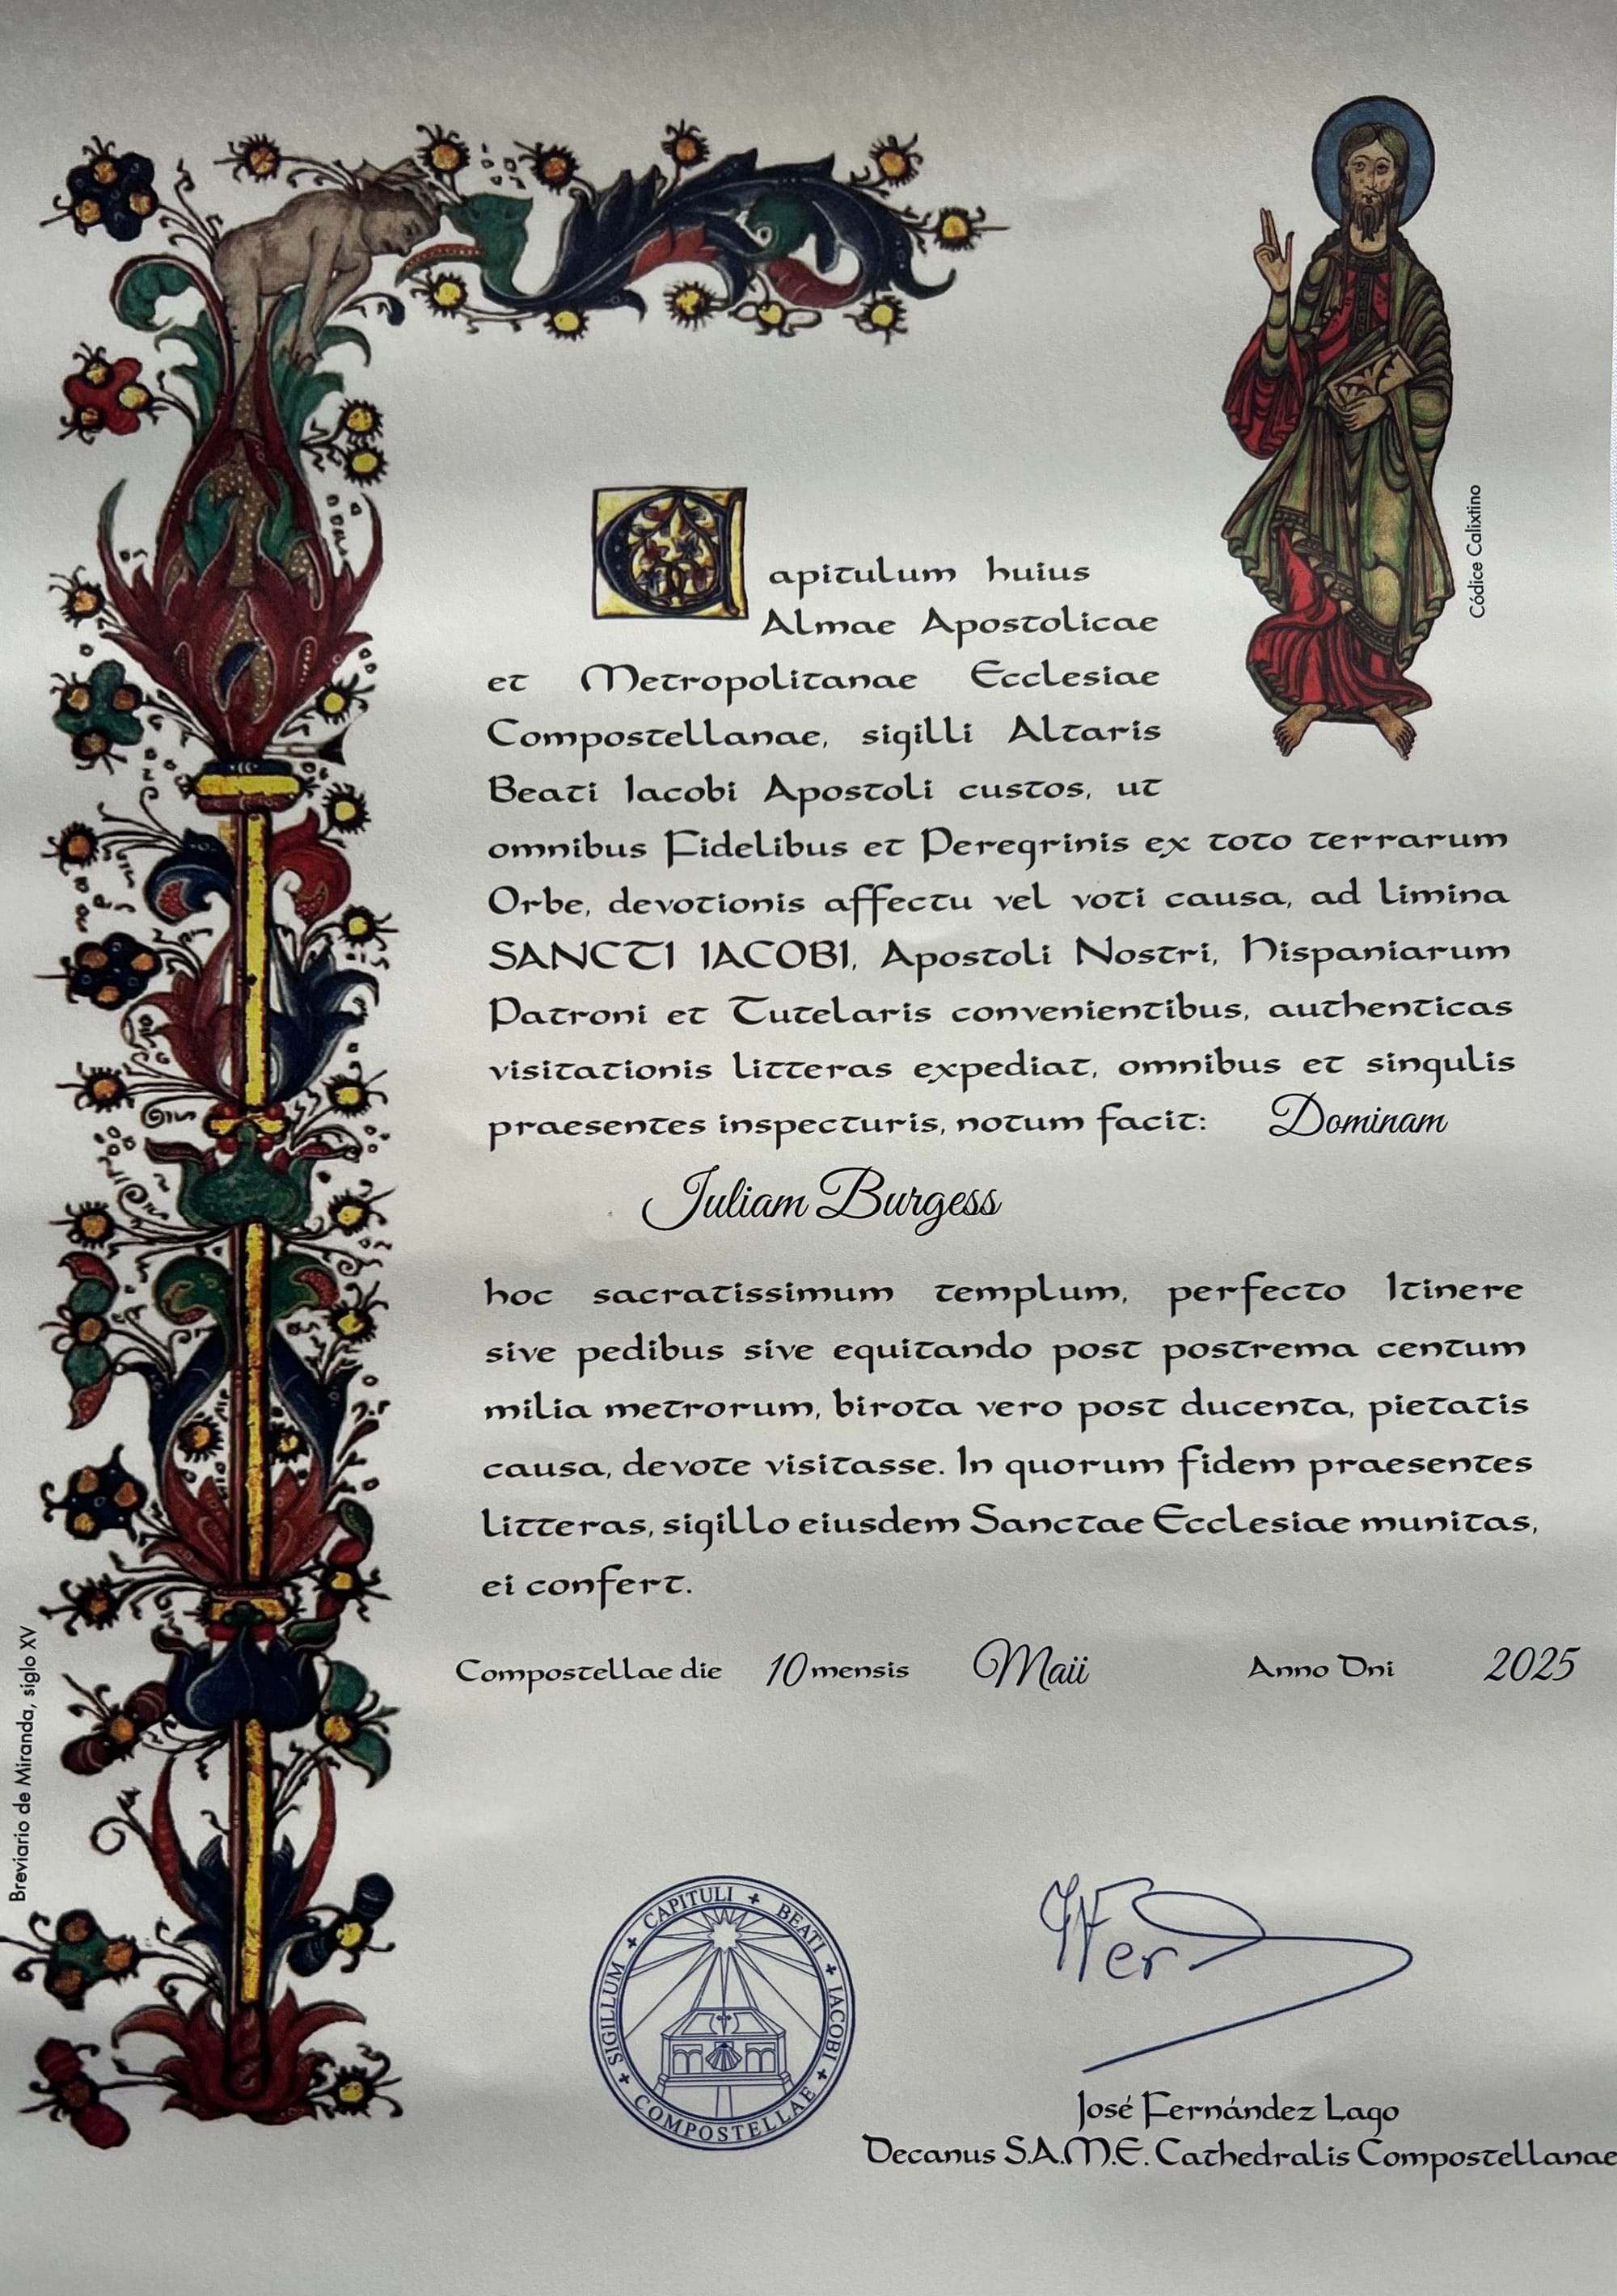 Capitulum huius
Almae Apostolicae
et Metropolitanae Ecclesiae
Compostellanae, sigilli Altaris
Beati Iacobi Apostoli custos, ut
omnibus Fidelibus et Peregrinis ex toto terrarum
Orbe, devotionis affectu vel voti causa, ad limina
SANCTI IACOBI, Apostoli Nostri, Hispaniarum
Patroni et Tutelaris convenientibus, authenticas
visitationis litteras expediat, omnibus et singulis
praesentes inspecturis, notum facit: Dominam
Iuliam Burgess
hoc sacratissimum templum, perfecto Itinere
sive pedibus sive equitando post postrema centum
milia metrorum, birota vero post ducenta, pietatis
causa, devote visitasse. In quorum fidem praesentes
litteras, sigillo eiusdem Sanctae Ecclesiae munitas,
ei confert.
Compostellae die 10 mensis Maii Anno Dni 2025
Códice Calixtino
Breviario de Miranda, siglo XV
SIGILLUM + CAPITULI + BEATI + IACOBI + COMPOSTELLAE +
José Fernández Lago
Decanus S.A.M.E. Cathedralis Compostellanae